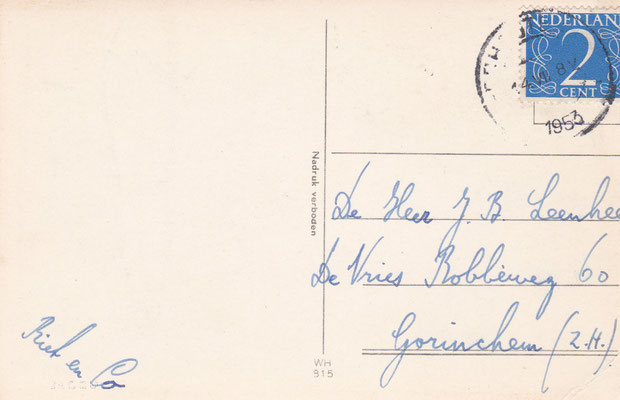 NEDERLAN
2
CENT
8.V
1953
Nadruk verboden
De Heer J. B. Leenhee
De Vries Robbéweg 60
Gorinchem (Z.H.)
Riet en Co
WH
915